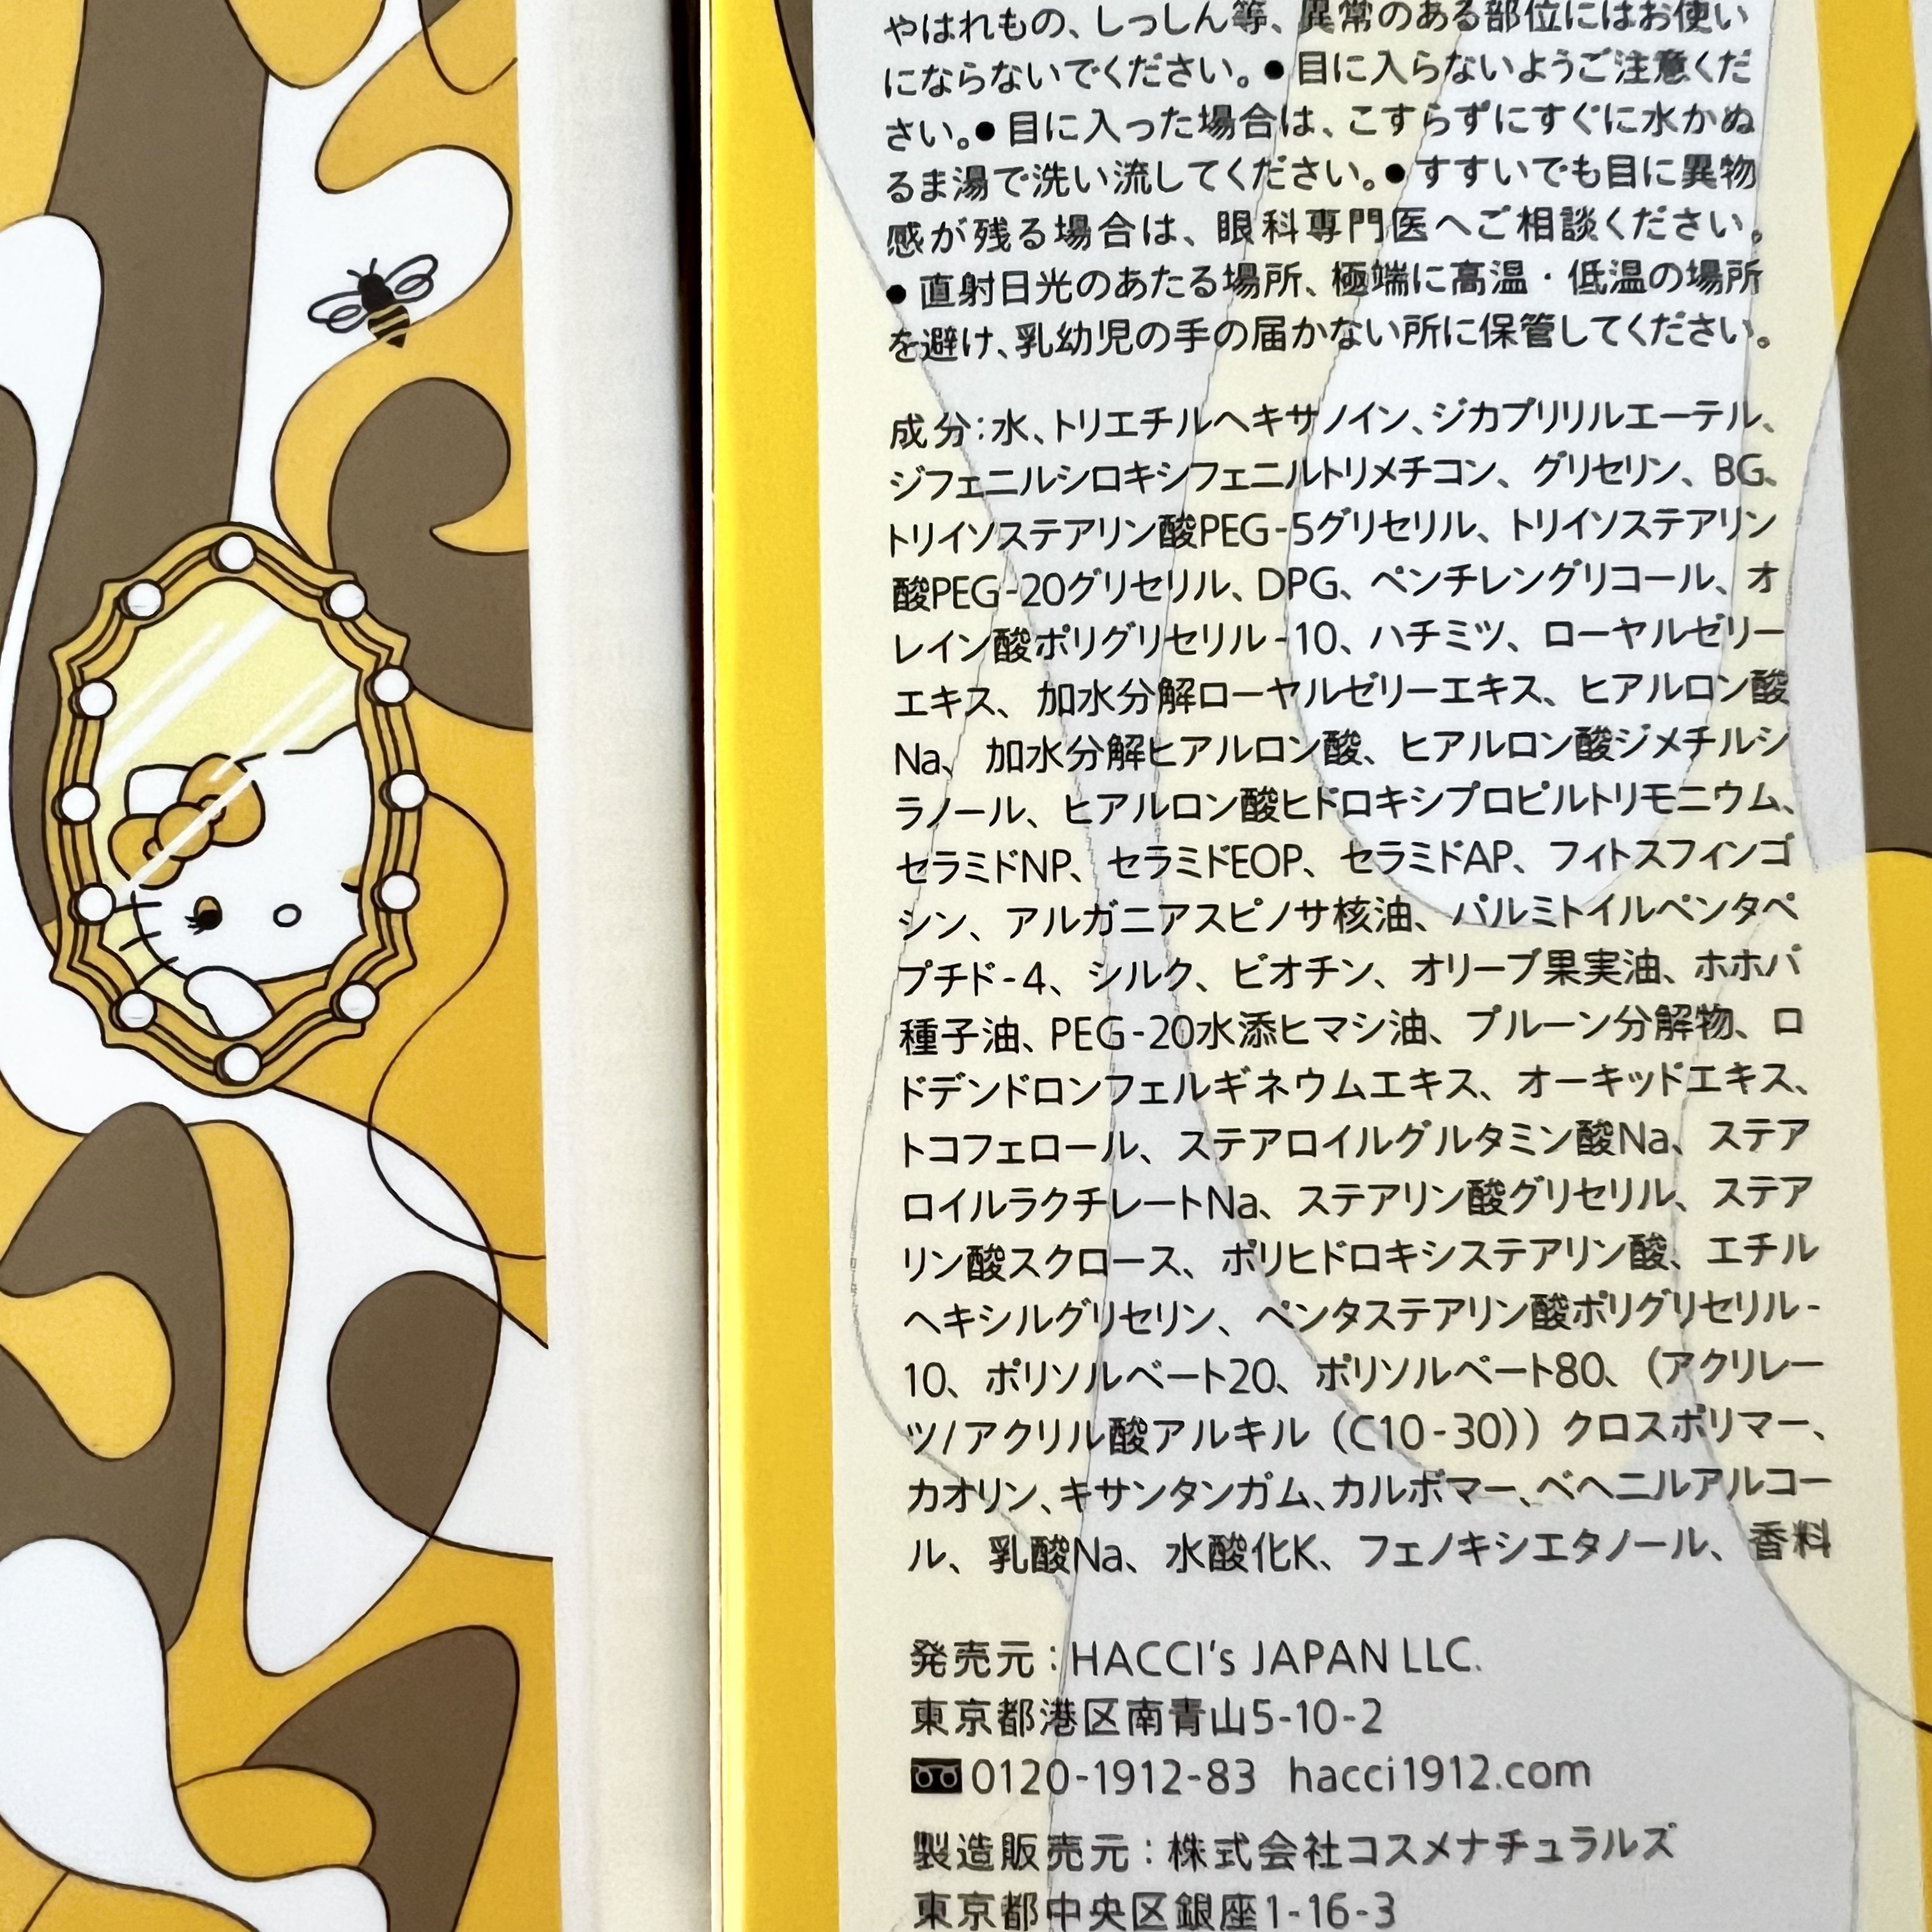 やはれもの、しっしん等、異常のある部位にはお使い
にならないでください。●目に入らないようご注意くだ
さい。●目に入った場合は、こすらずにすぐに水かぬ
るま湯で洗い流してください。●すすいでも目に異物
感が残る場合は、眼科専門医へご相談ください。
●直射日光のあたる場所、極端に高温・低温の場所
を避け、乳幼児の手の届かない所に保管してください。
成分：水、トリエチルヘキサノイン、ジカプリリルエーテル、
ジフェニルシロキシフェニルトリメチコン、グリセリン、BG、
トリイソステアリン酸PEG-5グリセリル、トリイソステアリン
酸PEG-20グリセリル、DPG、ペンチレングリコール、オ
レイン酸ポリグリセリル-10、ハチミツ、ローヤルゼリー
エキス、加水分解ローヤルゼリーエキス、ヒアルロン酸
Na、加水分解ヒアルロン酸、ヒアルロン酸ジメチルシ
ラノール、ヒアルロン酸ヒドロキシプロピルトリモニウム、
セラミドNP、セラミドEOP、セラミドAP、フィトスフィンゴ
シン、アルガニアスピノサ核油、パルミトイルペンタペ
プチド-4、シルク、ビオチン、オリーブ果実油、ホホバ
種子油、PEG-20水添ヒマシ油、プルーン分解物、ロ
ドデンドロンフェルギネウムエキス、オーキッドエキス、
トコフェロール、ステアロイルグルタミン酸Na、ステア
ロイルラクチレートNa、ステアリン酸グリセリル、ステア
リン酸スクロース、ポリヒドロキシステアリン酸、エチル
ヘキシルグリセリン、ペンタステアリン酸ポリグリセリル-
10、ポリソルベート20、ポリソルベート80、（アクリレー
ツ/アクリル酸アルキル（C10-30））クロスポリマー、
カオリン、キサンタンガム、カルボマー、ベヘニルアルコー
ル、乳酸Na、水酸化K、フェノキシエタノール、香料
発売元：HACCI's JAPAN LLC.
東京都港区南青山5-10-2
0120-1912-83 hacci1912.com
製造販売元：株式会社コスメナチュラルズ
東京都中央区銀座1-16-3